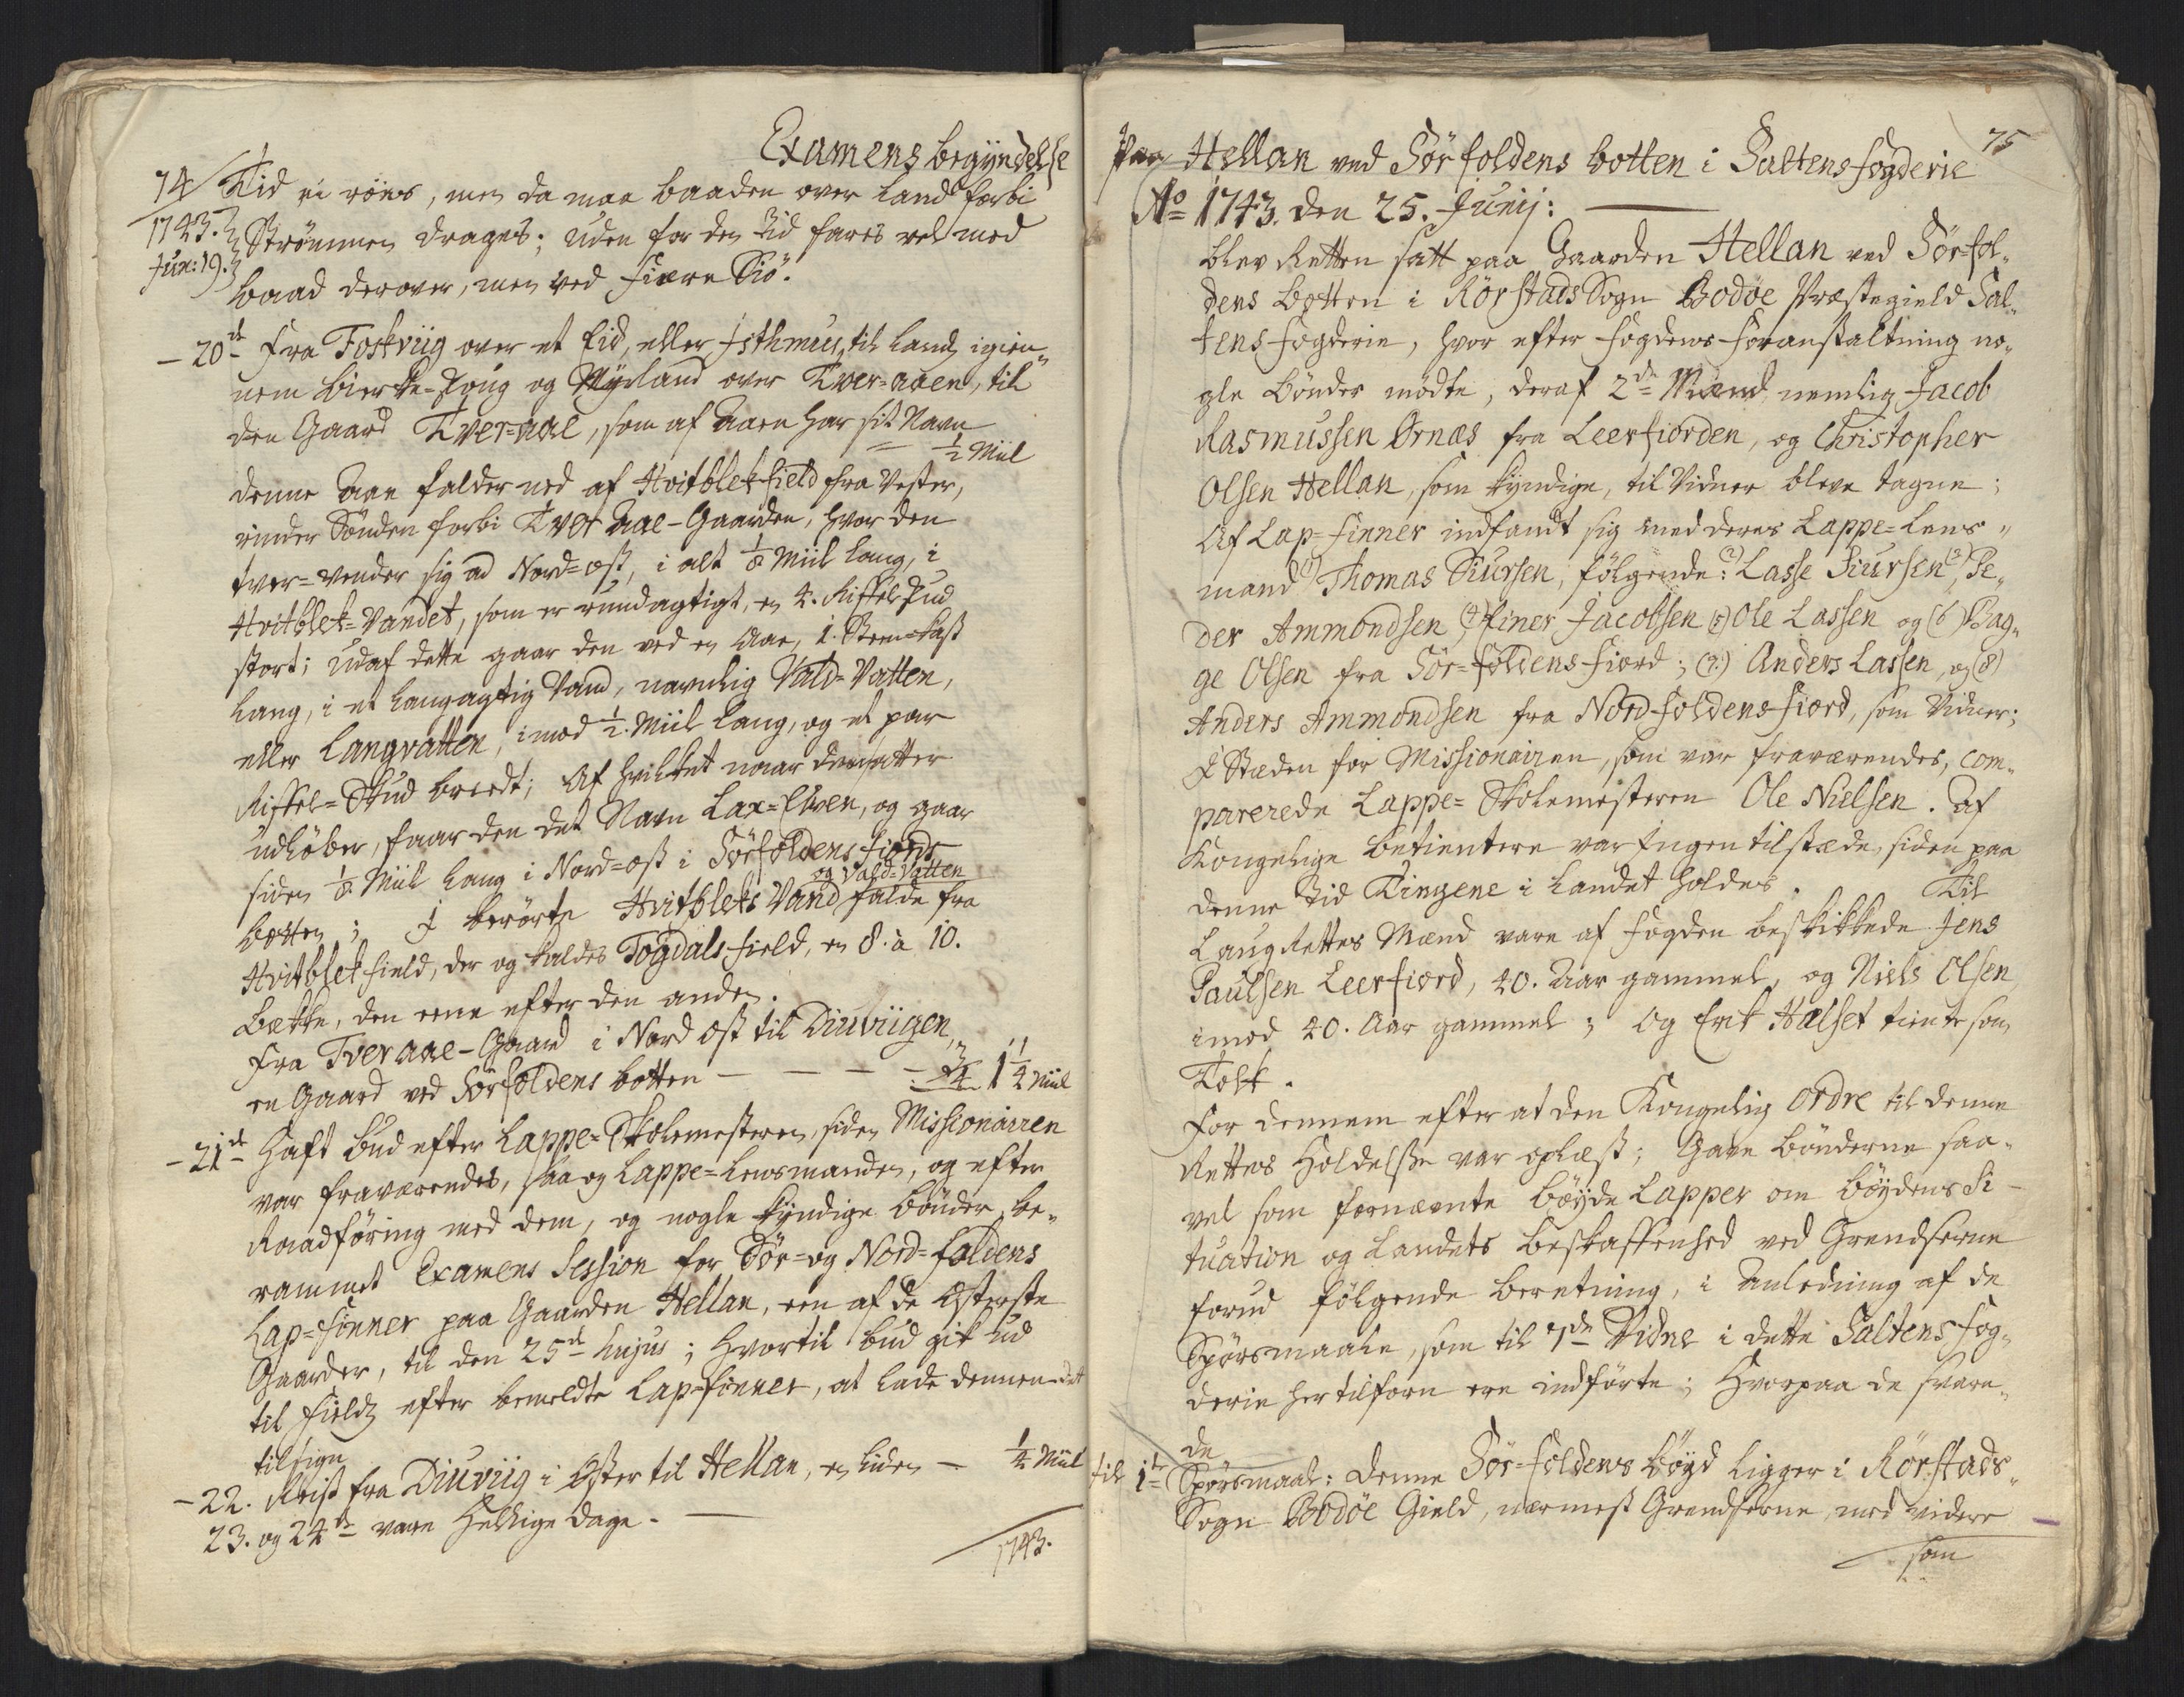 Examens begÿndelse
74 Tid ei röres, men da maa baaden over land forbi
1743. Strömmen drages; uden for den tid fares vel med
Jun: 19. baad derover, men ved fiære Siö.
- 20de Fra Foskviig over et Eid, eller Isthmus, til lands igien¬
nem bierke-Skoug og Mÿrland over Tver-aaen, til
den Gaard Tver-aae, som af Aaen har sit Navn
= ½ Miil
denne Aae falder ned af Hvitblekfield fra Vester,
rinder Sönden forbi Tver Aae-Gaarden, hvor den
tver-vender sig ad Nord-ost, i alt ⅛ Miil lang, i
Hvitblek-Vandet, som er rundagtigt, en 4. Riffel Skud
stort; udaf dette gaar den ved en Aae, 1. Steen-kast
lang, i et langagtig Vand, navnlig Vald-Vatten,
eller Langvatten, imod ½. Miil lang, og et par
Riffel-Skud breedt; Af hvilket naar den satter
udlöber, faar den det Navn Lax-Elven, og gaar
siden ⅛ Miil lang i Nord-ost i Sörfoldens fiords
botten; I berörte Hvitbleks Vand og Vald-Vatten falde fra
Hvitblekfield, der og kaldes Togdals field, en 8. à 10.
bække, den eene efter den anden.
Fra Tver aae-Gaard i Nord ost til Diuviigen,
en Gaard ved Sörfoldens botten - - - - ¾ 1¼ Miil
- 21de Haft bud efter Lappe-Skolemesteren, siden Missionairen
var fraværendes, saa og Lappe-Lensmanden, og efter
Raadföring med dem, og nogle kÿndige bönder, be¬
rammet Examens Session for Sör- og Nord-foldens
Lap-Finner paa Gaarden Hellan, een af de Österste
Gaarder, til den 25de hujus; hvortil bud gik ud
til Fields efter bemeldte Lap-finner, at lade dennem det
tilsige
- 22. Reist fra Diuviig i Öster til Hellan, en liden - ¼ Miil
23. og 24de vare Hellige dage. -
1743.
paa Hellan ved Sör foldens botten i Saltens fogderie 75
Ao 1743. den 25. Junij:
blev Retten satt paa Gaarden Hellan ved Sör-fol¬
dens botten i Rörstads Sogn Bodöe Præstegield Sal¬
tens fogderie, hvor efter Fogdens Foranstaltning no¬
gle bönder mödte, deraf 2de Mænd nemlig Jacob
Rasmussen Örnæs fra Leerfiorden, og Christopher
Olsen Hellan, som kÿndige, til Vidner bleve tagne;
Af Lap-Finner indfandt sig med deres Lappe-Lens¬
mand (1) Thomas Siursen, fölgende: (2) Lasse Siursen (3) Pe¬
der Ammondsen (4) Einer Jacobsen (5) Ole Lassen og (6) Bag¬
ge Olsen fra Sör-foldens fiord; (7:) Anders Lassen, og (8)
Anders Ammondsen fra Nord-foldens fiord, som Vidner;
I Stæden for Missionairen, som var fraværendes, com¬
parerede Lappe-Skolemesteren Ole Nielsen. Af
Kongelige betientere var Ingen tilstæde, siden paa
denne tid Tingene i Landet holdes. Til
Laug Rettes Mænd vare af Fogden beskikkede Jens
Paulsen Leerfiord, 40. Aar gammel, og Niels Olsen
imod 40. Aar gammel; og Erik Hælset tiente som
Tolk.
For dennem efter at den Kongelig Ordre til denne
Rettes Holdelse var oplæst; Gave bönderne saa¬
vel som fornævnte böÿde Lapper om böÿdens Si¬
tuation og Landets beskaffenhed ved Grendserne
forud fölgende beretning, i Anledning af de
Spörsmaale, som til 1de Vidne i dette Saltens fog¬
derie her tilforn ere indförte; Hvorpaa de svare¬
de
til 1te Spörsmaal: denne Sör-foldens böÿd ligger i Rörstads
Sogn Bodöe Gield, nærmest Grendserne, med videre
som